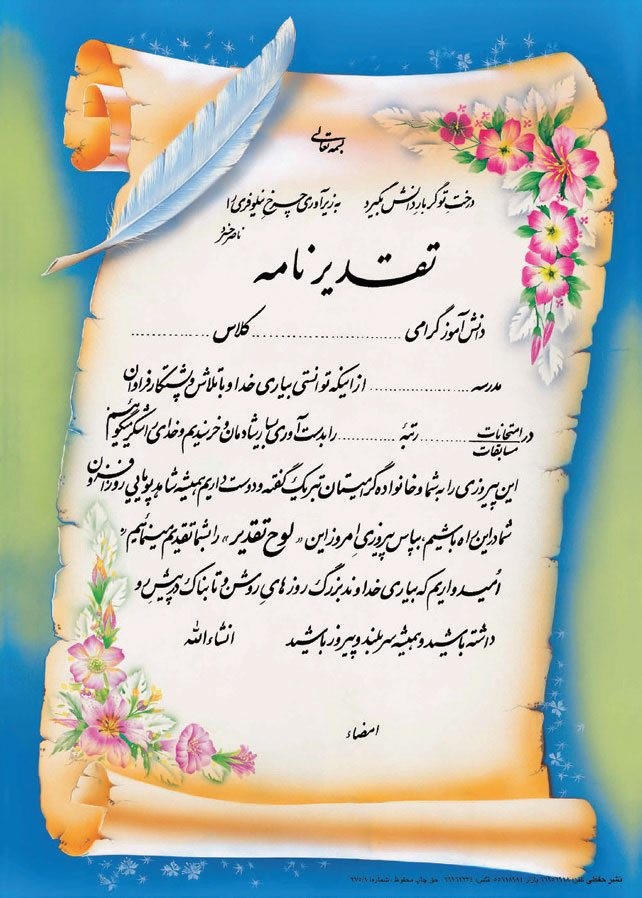 بسمه تعالی
درخت تو گر بار دانش بگیرد به زیر آوری چرخ نیلوفری را
ناصر خسرو
تقدیرنامه
دانش‌آموز گرامی .................... کلاس ..............
مدرسه .............. از اینکه توانستی بیاری خدا و با تلاش و پشتکار فراوان
در امتحانات / مسابقات .............. رتبهٔ .............. را بدست آوری بسیار شادمان و خرسندیم و خدای را شکر میگوئیم
این پیروزی را به شما و خانواده گرامیتان تبریک گفته و دوست داریم همیشه شاهد پویایی روزافزون
شما در این راه باشیم، بپاس پیروزی امروز این «لوح تقدیر» را بشما تقدیم مینمائیم و
امیدواریم که بیاری خداوند بزرگ روزهای روشن و تابناک در پیش رو
داشته باشید و همیشه سربلند و پیروز باشید انشاءالله
امضاء
نشر حفظی تلفن: بازار: فکس: حق چاپ محفوظ. شماره: